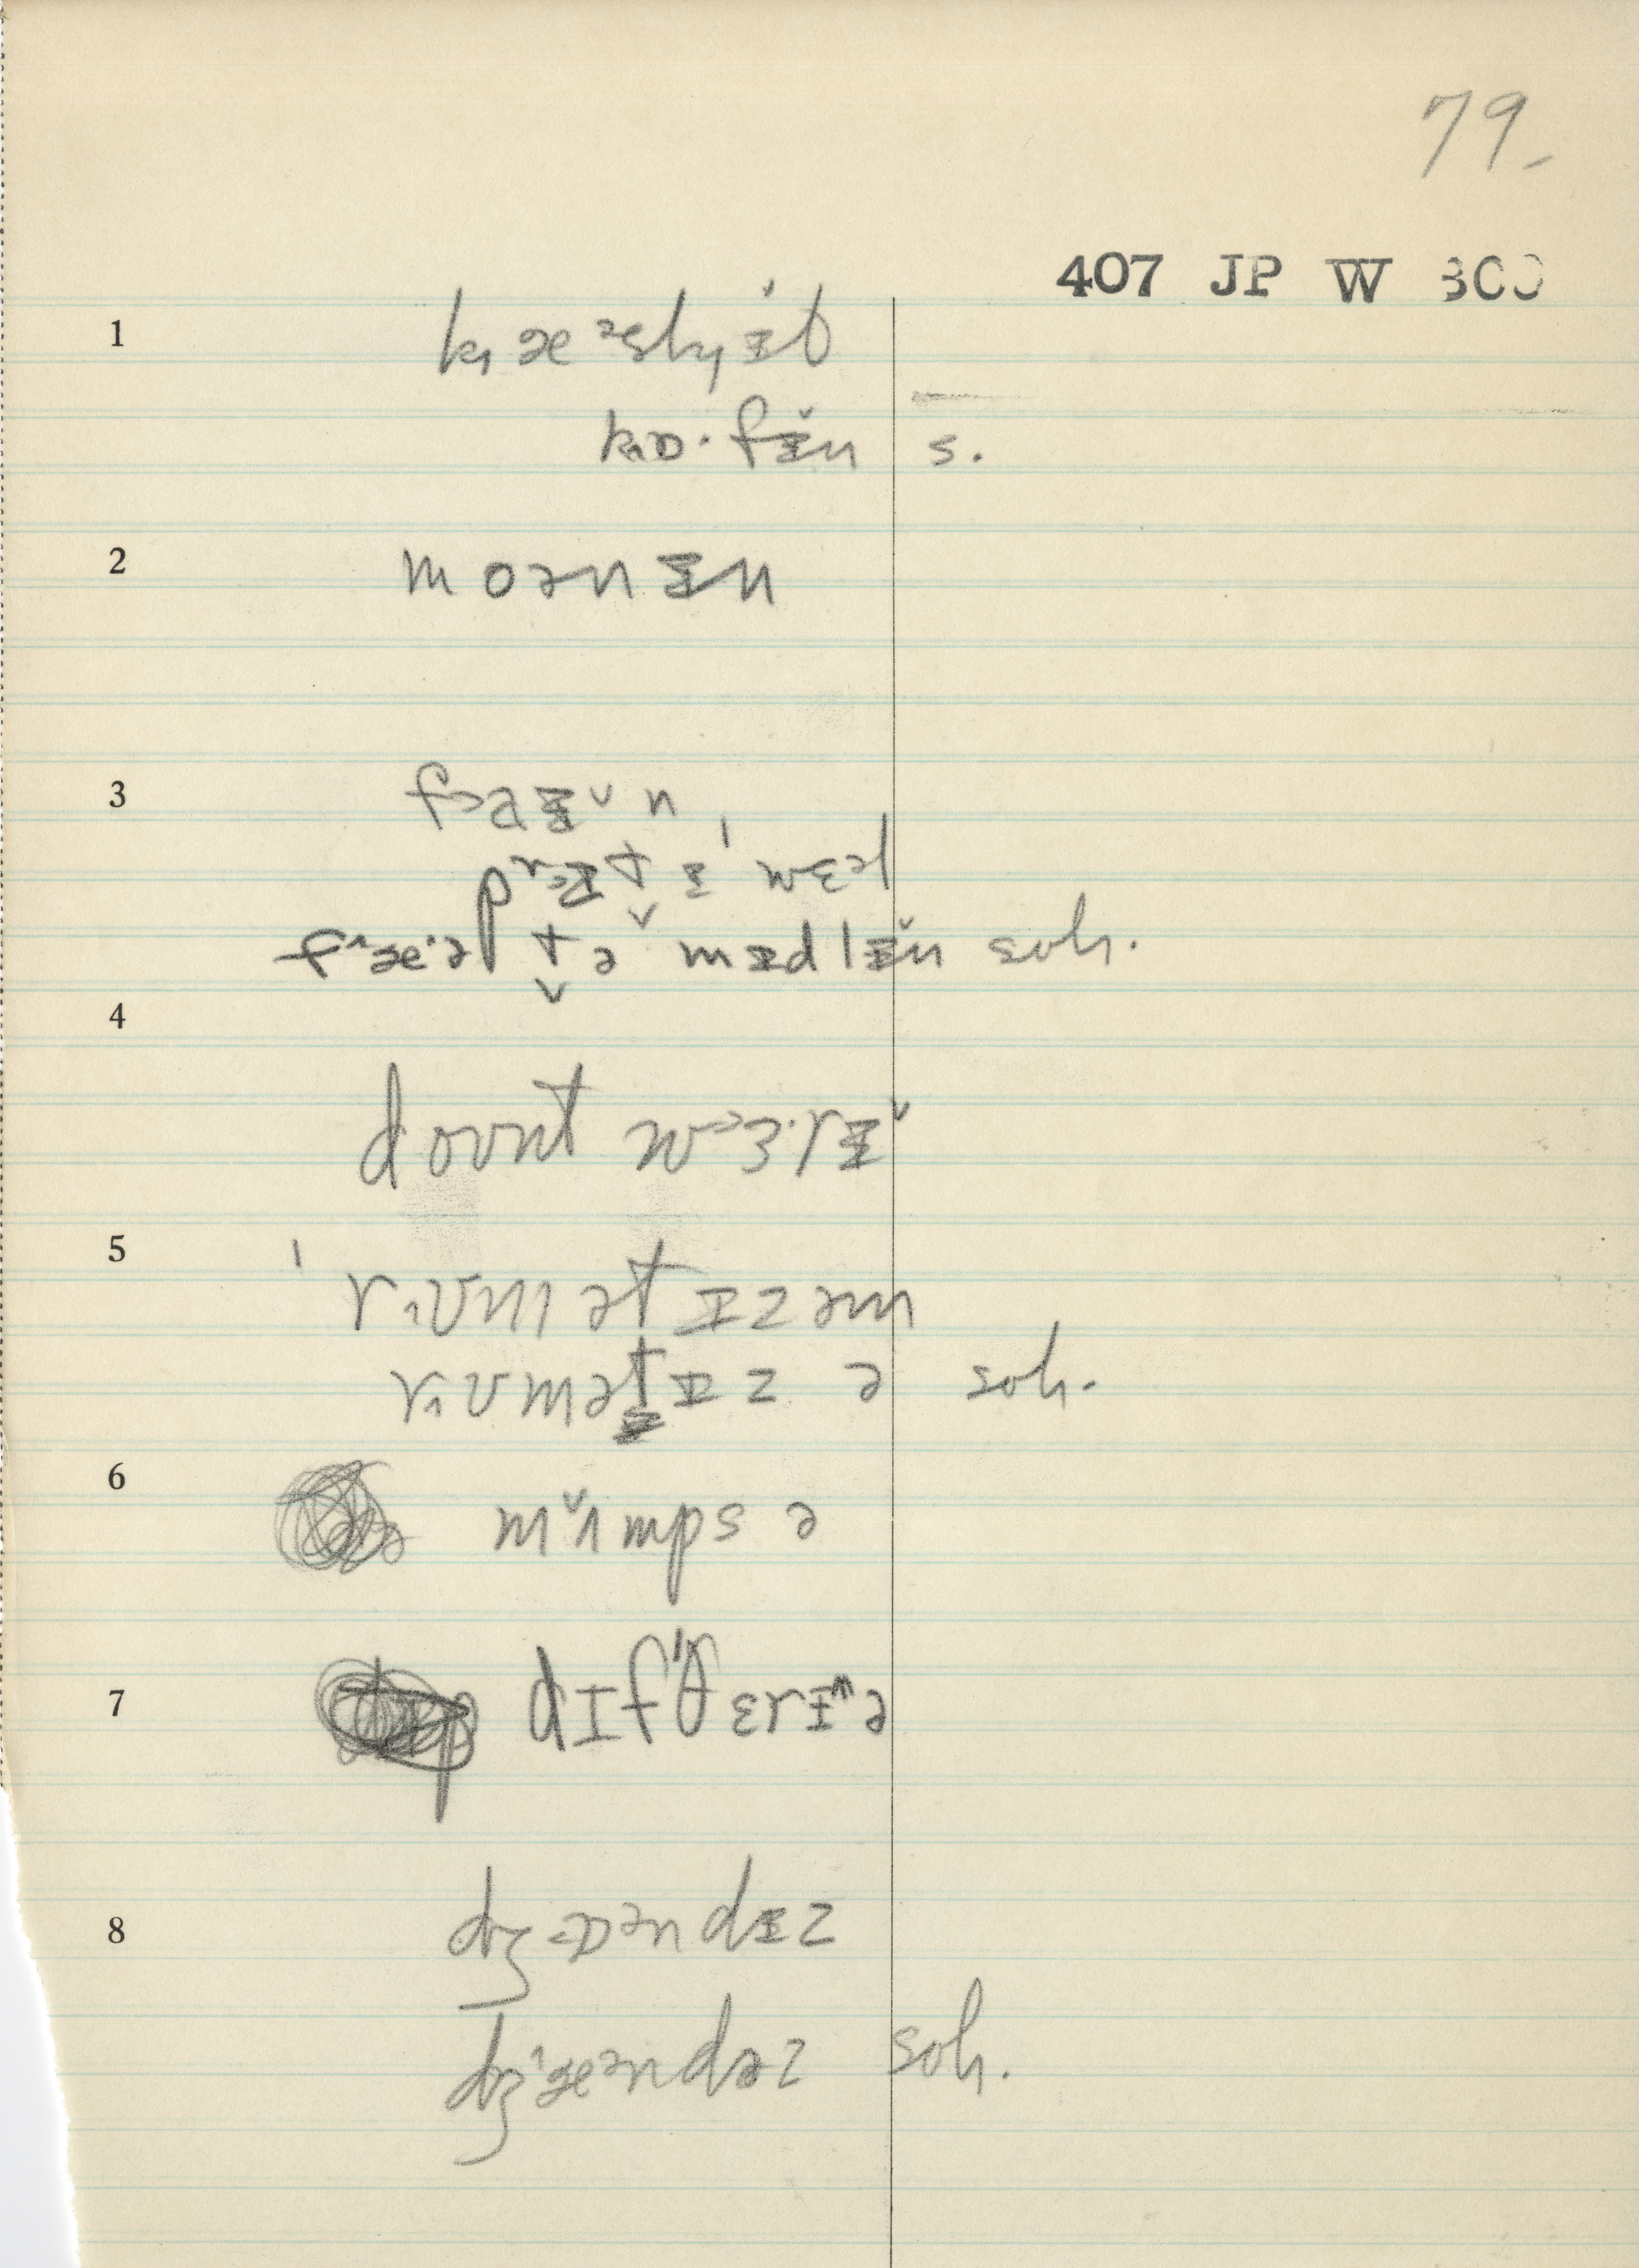 79.
407 JP W 300
1 k˄æᵊsk˄ɪ̵̌t
k˄ɒ·fɪ̵̌n s.
2 moənɪ̵n
3 f>aɪ̵̌n
t ɪ̵ˈ wɛəl
t̬ə mɪ̵dlɪ̵̌n soh.
4
doʊnt w>ɜ·rɪ̵̌
5 ˈr˄ʊmətɪ̵zəm
r˄ʊmət̬ɪ̵z ə soh.
6 mʌ̌mps ə
7 dɪfˈθɛrɪ̵ə
8 dʒɒᵊndɪ̵z
dʒ˄æᵊndəz soh.